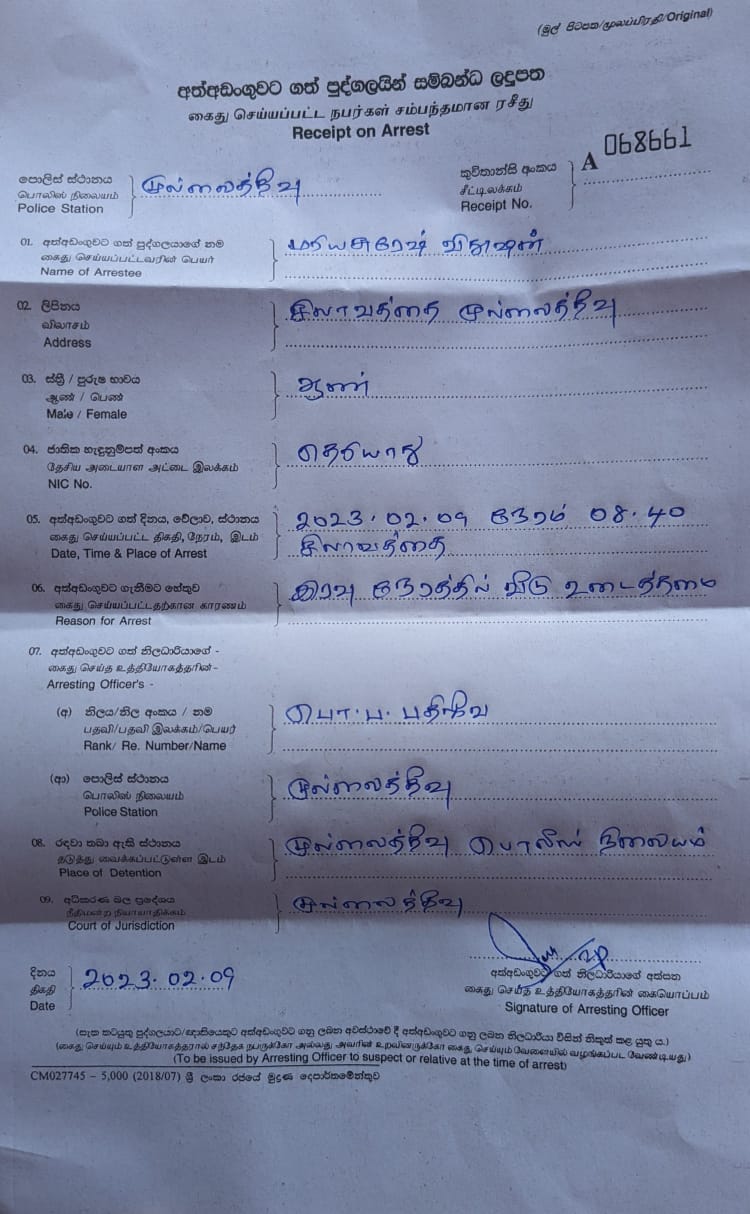 (මුල් පිටපත/மூலப்பிரதி/Original)
අත්අඩංගුවට ගත් පුද්ගලයින් සම්බන්ධ ලදුපත
கைது செய்யப்பட்ட நபர்கள் சம்பந்தமான ரசீது
Receipt on Arrest
පොලිස් ස්ථානය
பொலிஸ் நிலையம்
Police Station
முல்லைத்தீவு
කුවිතාන්සි අංකය
சீட்டிலக்கம்
Receipt No.
A 068661
01. අත්අඩංගුවට ගත් පුද්ගලයාගේ නම
கைது செய்யப்பட்டவரின் பெயர்
Name of Arrestee
மரியசுரேஷ்
02. ලිපිනය
விலாசம்
Address
சிலாவத்தை முல்லைத்தீவு
03. ස්ත්‍රී / පුරුෂ භාවය
ஆண் / பெண்
Male / Female
ஆண்
04. ජාතික හැඳුනුම්පත් අංකය
தேசிய அடையாள அட்டை இலக்கம்
NIC No.
தெரியாது
05. අත්අඩංගුවට ගත් දිනය, වේලාව, ස්ථානය
கைது செய்யப்பட்ட திகதி, நேரம், இடம்
Date, Time & Place of Arrest
2023.02.09 நேரம் 08.40
சிலாவத்தை
06. අත්අඩංගුවට ගැනීමට හේතුව
கைது செய்யப்பட்டதற்கான காரணம்
Reason for Arrest
இரவு நேரத்தில் வீடு உடைத்தமை
07. අත්අඩංගුවට ගත් නිලධාරියාගේ -
கைது செய்த உத்தியோகத்தரின் -
Arresting Officer's -
(අ) නිලය/නිල අංකය / නම
பதவி/பதவி இலக்கம்/பெயர்
Rank/ Re. Number/Name
பொ.ப.
(ආ) පොලිස් ස්ථානය
பொலிஸ் நிலையம்
Police Station
முல்லைத்தீவு
08. රඳවා තබා ඇති ස්ථානය
தடுத்து வைக்கப்பட்டுள்ள இடம்
Place of Detention
முல்லைத்தீவு பொலிஸ் நிலையம்
09. අධිකරණ බල ප්‍රදේශය
நீதிமன்ற நியாயாதிக்கம்
Court of Jurisdiction
முல்லைத்தீவு
දිනය
திகதி
Date
2023.02.09
අත්අඩංගුවට ගත් නිලධාරියාගේ අත්සන
கைது செய்த உத்தியோகத்தரின் கையொப்பம்
Signature of Arresting Officer
(සැක කටයුතු පුද්ගලයාට/ඥාතියෙකුට අත්අඩංගුවට ගනු ලබන අවස්ථාවේ දී අත්අඩංගුවට ගනු ලබන නිලධාරියා විසින් නිකුත් කළ යුතු ය.)
(கைது செய்யும் உத்தியோகத்தரால் சந்தேக நபருக்கோ அல்லது அவரின் உறவினருக்கோ கைது செய்யும் வேளையில் வழங்கப்பட வேண்டியது)
(To be issued by Arresting Officer to suspect or relative at the time of arrest)
CM027745 – 5,000 (2018/07) ශ්‍රී ලංකා රජයේ මුද්‍රණ දෙපාර්තමේන්තුව